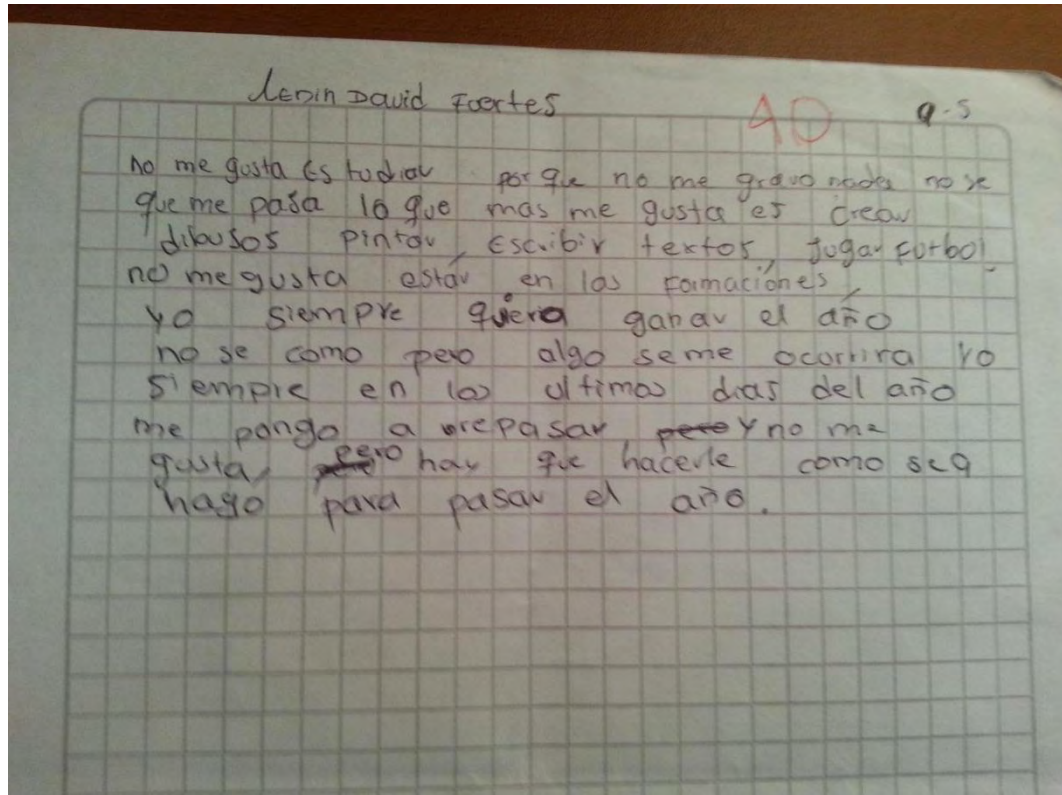 Lenin David Fuertes 40 9-5
no me gusta Estudiar porque no me gravo nada no se
que me pasa lo que mas me gusta es crear
dibusos pintar, Escribir textos, Jugar Futbol,
no me gusta estar en las formaciónes,
yo siempre quiero ganar el año
no se como pero algo seme ocorrira yo
siempre en los ultimos dias del año
me pongo a repasar y no me
gusta, pero hay que hacerle como sea
hago para pasar el año.